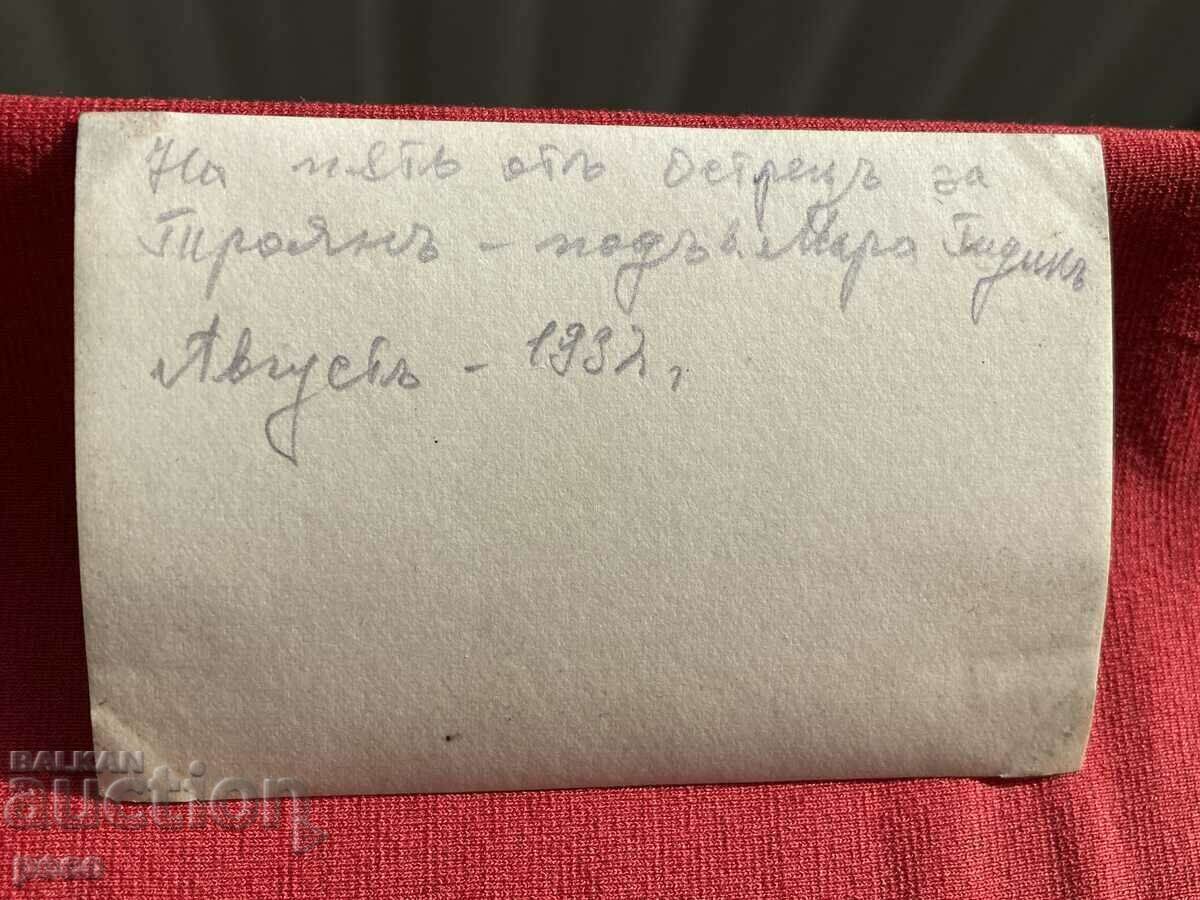 На пять отъ Острецъ за
Троянъ - подъ в. Мара Гидикъ
Августъ - 1932 г,
BALKAN
auction
peso